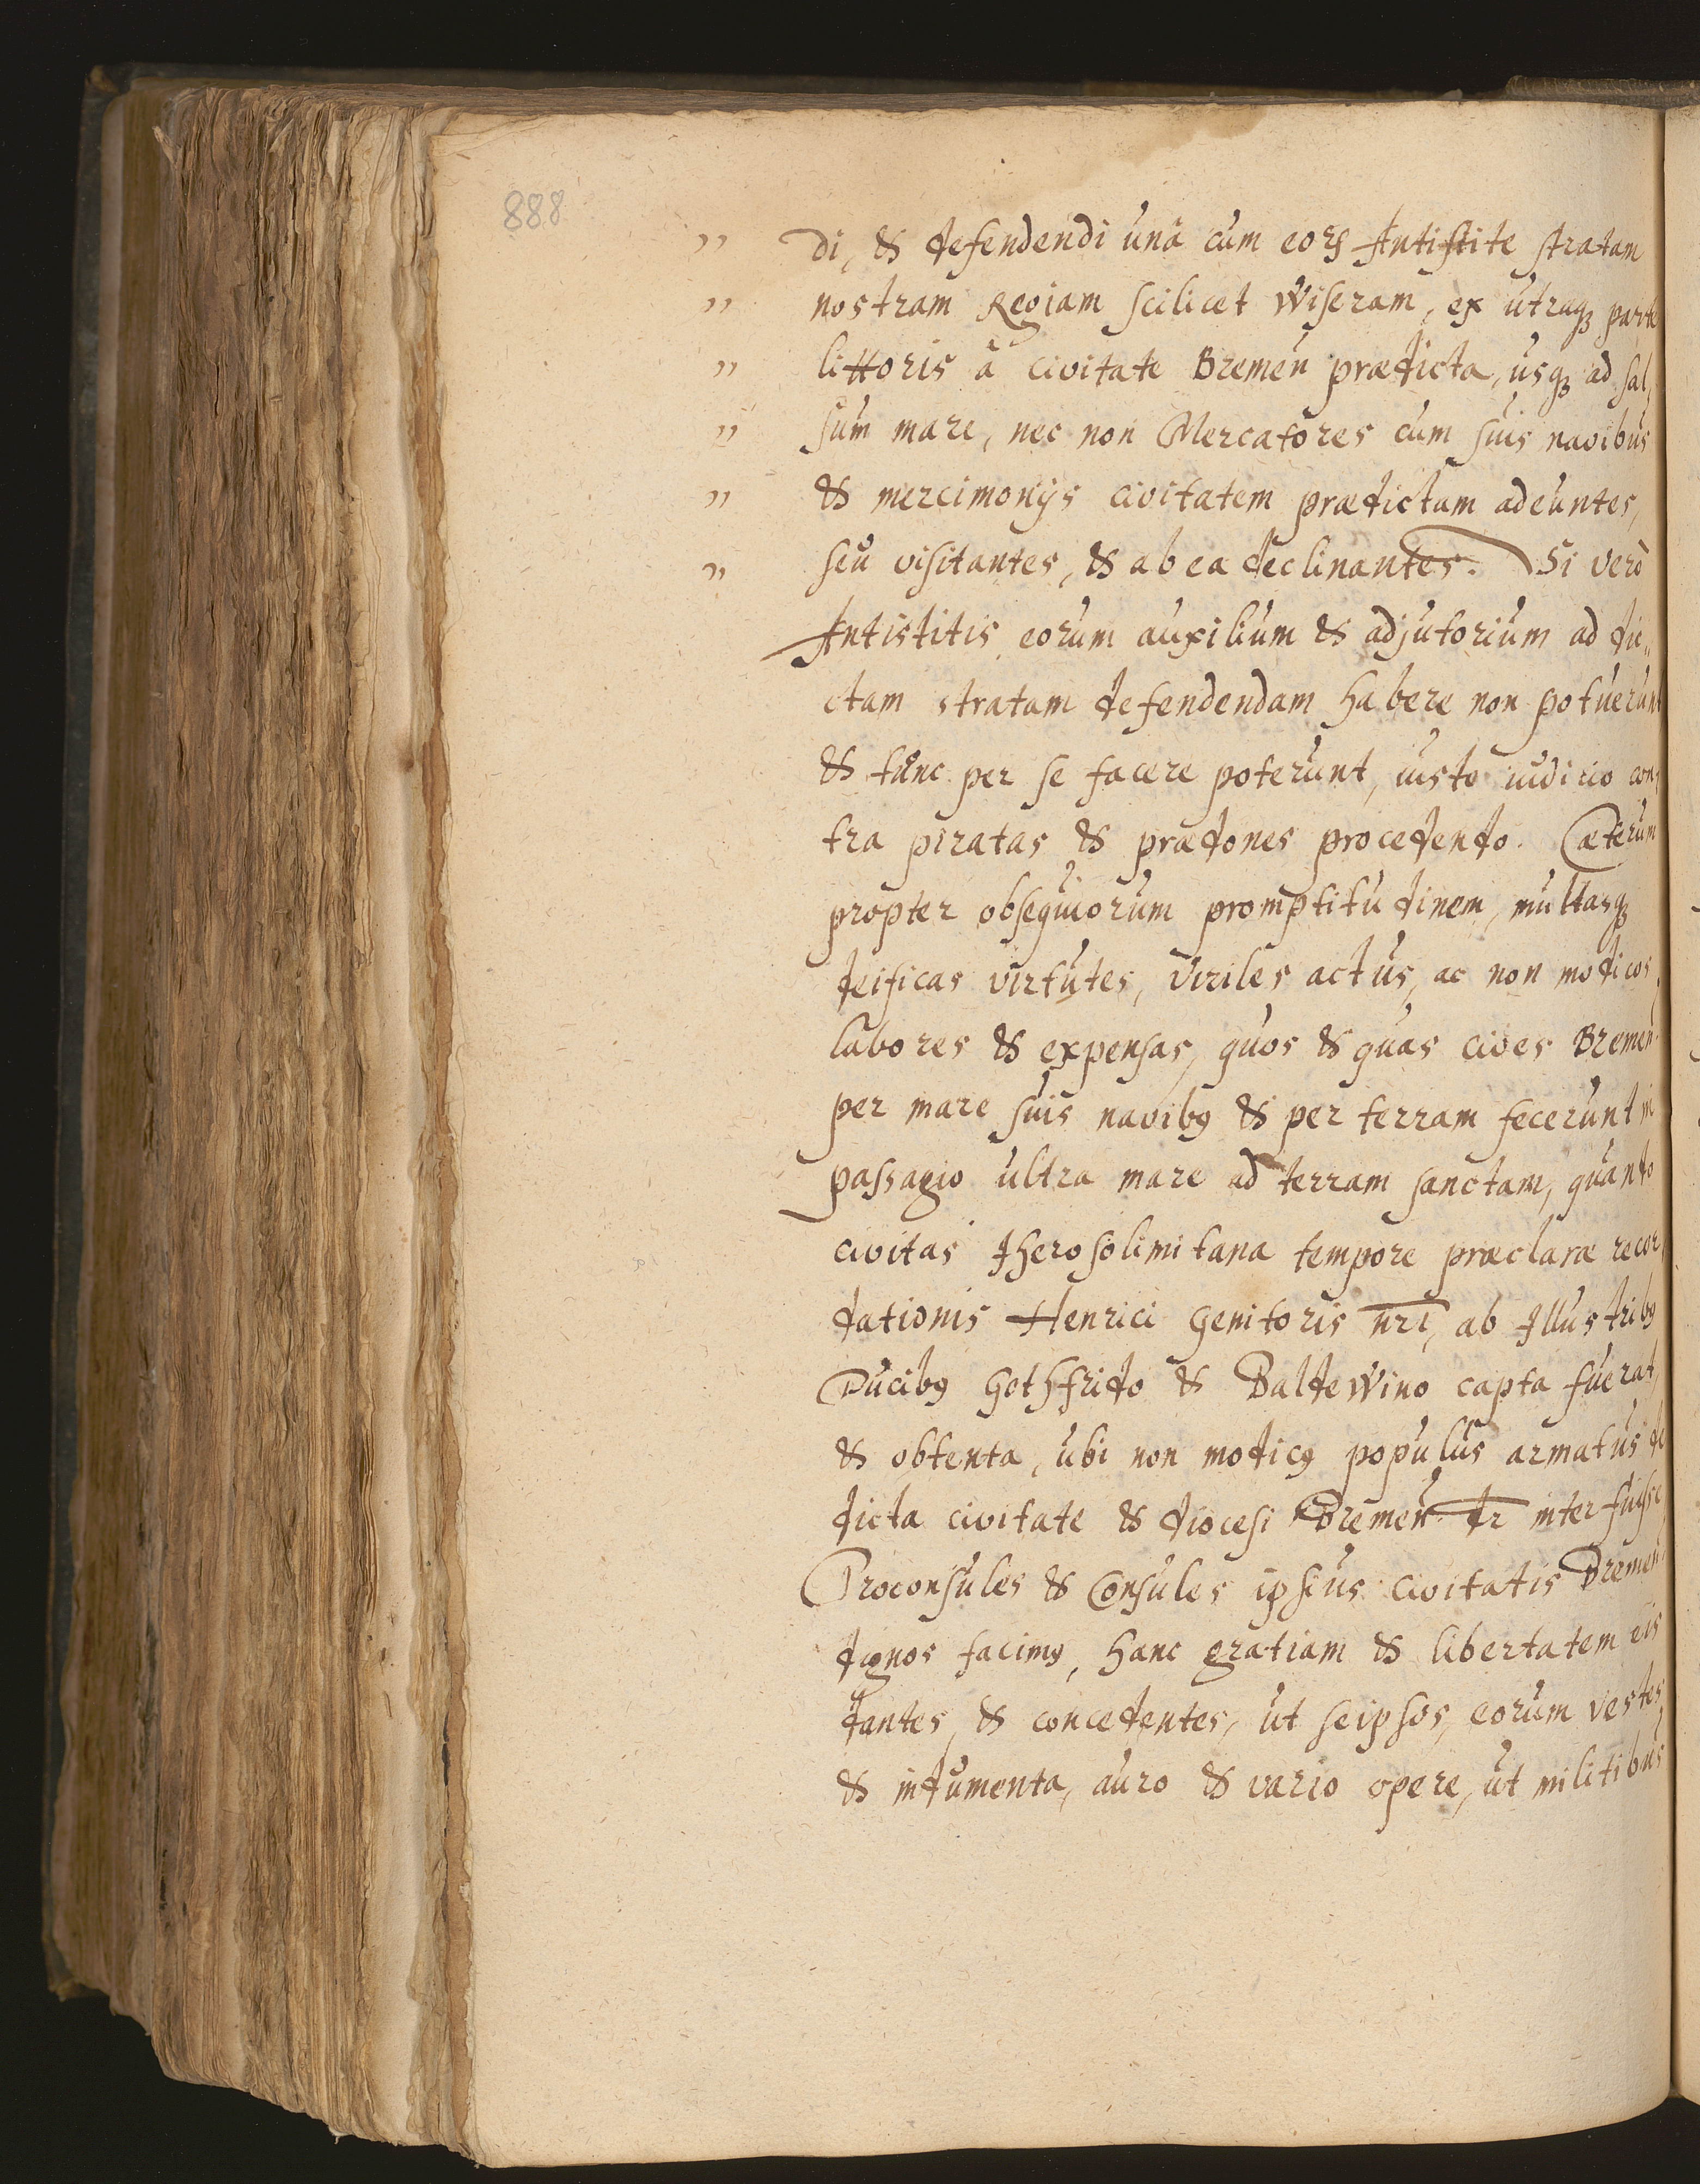 888
" di, & defendendi unâ cum eorꝝ Antistite stratam
" nostram Regiam scilicet Wiseram, ex utraqꝫ parte
" littoris â civitate Bremeñ prædicta, usqꝫ ad sal,
" sum mare, nec non Mercatores cum suis navibus
" & mercimonijs civitatem prædictam adeuntes,
" seu visitantes, & ab ea declinantes. Si verò
Antistitis eorum auxilium & adjutorium ad di„
ctam stratam defendendam habere non potuerunt
& tunc per se facere poterunt, iusto iudicio con,
tra piratas & prædones procedendo. Cæterum
propter obsequiorum promptitudinem, multasqꝫ
deificas virtutes, viriles actus, ac non modicos
labores & expensas, quos & quas cives Bremeñ
per mare suis navibꝯ & per terram fecerunt in
passagio ultra mare ad terram sanctam, quando
civitas Iherosolimitana tempore præclaræ recor,
dationis Henrici Genitoris nr̄i, ab Illustribꝯ
Ducibꝯ Gothfrido & Baldewino capta fuerat,
& obtenta, ubi non modicꝯ populus armatus de
dicta civitate & diocesi Bremeñ dr̄ interfuisse
Proconsules & Consules ipsius civitatis Bremeñ
dignos facimꝯ, hanc gratiam & libertatem eis
dantes, & concedentes, ut seipsos, eorum vestes
& indumenta, auro & vario opere, ut militibus